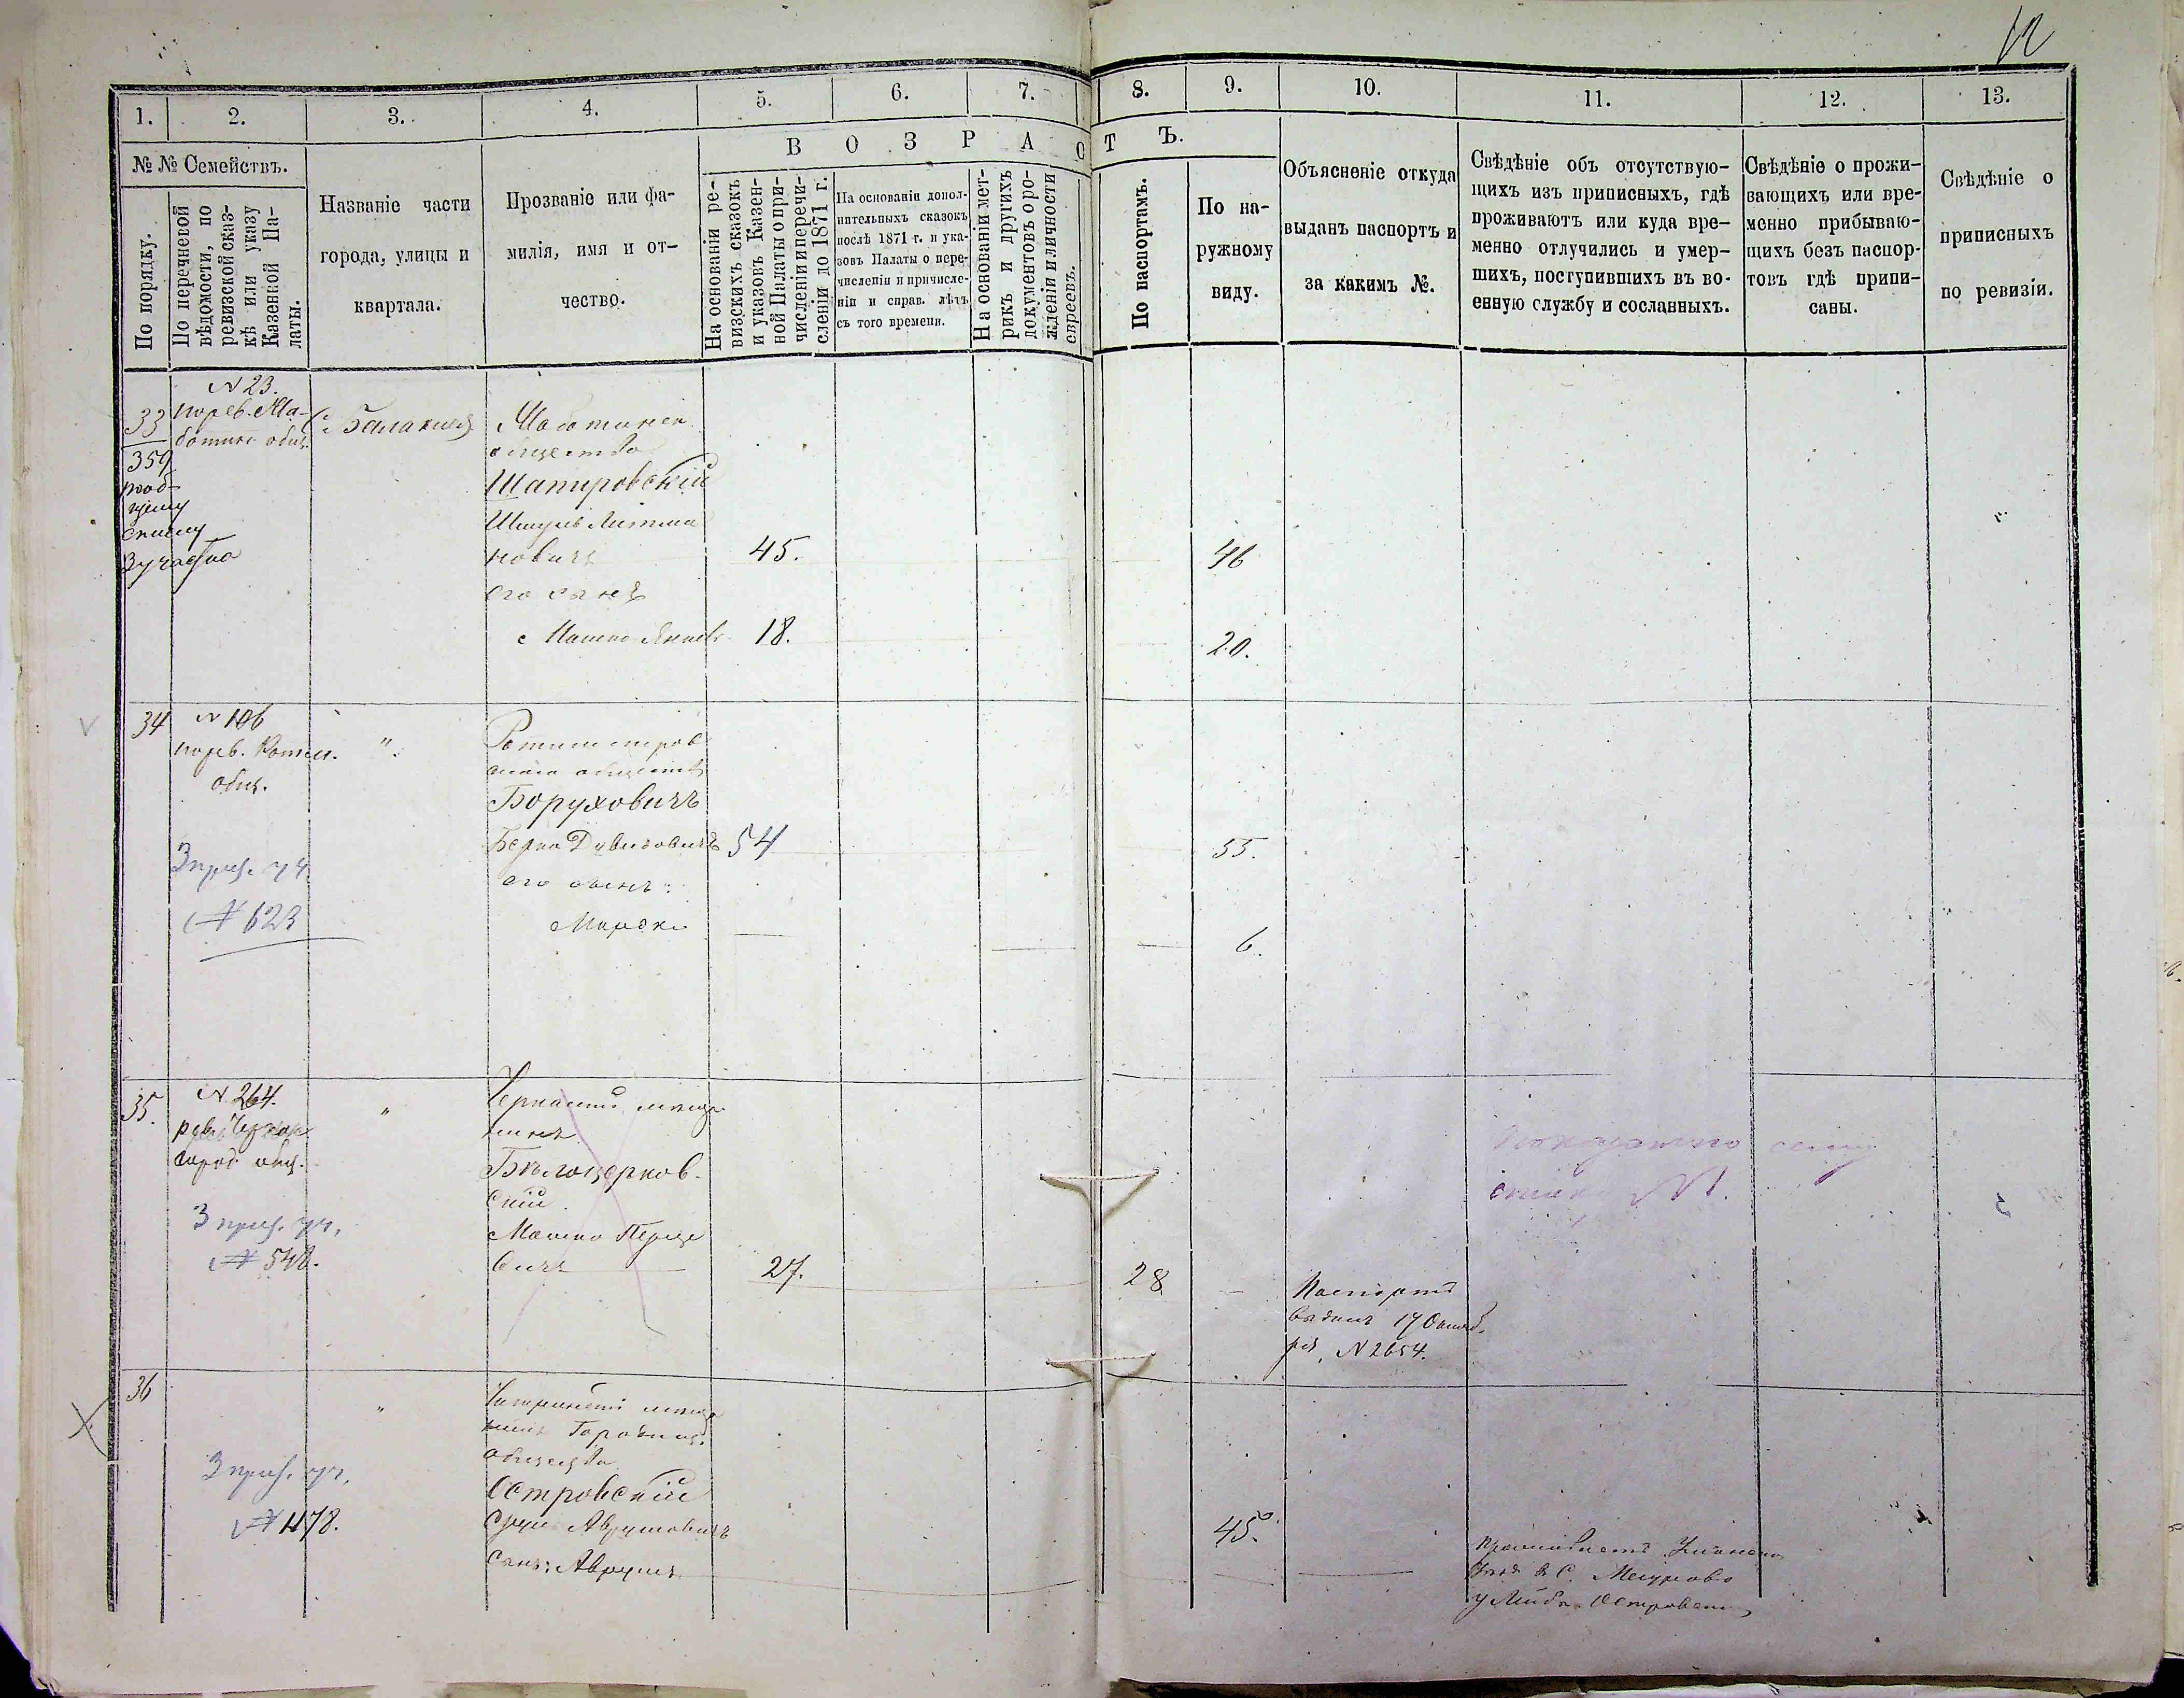 12
1. 2. 3. 4. 5. 6. 7. 8. 9. 10. 11. 12. 13.
№ № Семействъ.
По порядку.
По перечневой
вѣдомости, по
ревизской сказ-
кѣ или указу
Казенной Па-
латы.
Названіе части
города, улицы и
квартала.
Прозваніе или фа-
милія, имя и от-
чество.
В О З Р А С Т Ъ.
На основаніи ре-
визскихъ сказокъ
и указовъ Казен-
ной Палаты о при-
численіи и перечи-
сленіи до 1871 г.
На основаніи допол-
нительныхъ сказокъ
послѣ 1871 г. и ука-
зовъ Палаты о пере-
численіи и причисле-
ніи и справ. лѣтъ
съ того времени.
На основаніи мет-
рикъ и другихъ
документовъ о ро-
жденіи и личности
евреевъ.
По паспортамъ.
По на-
ружному
виду.
Объясненіе откуда
выданъ паспортъ и
за какимъ №.
Свѣдѣніе объ отсутствую-
щихъ изъ приписныхъ, гдѣ
проживаютъ или куда вре-
менно отлучились и умер-
шихъ, поступившихъ въ во-
енную службу и сосланныхъ.
Свѣдѣніе о прожи-
вающихъ или вре-
менно прибываю-
щихъ безъ паспор-
товъ гдѣ припи-
саны.
Свѣдѣніе о
приписныхъ
по ревизіи.
33
359
по об-
щему
списку
3 участка
N 23.
по рев. Ма-
ботинс общ.
с Балаклея
Маботинск
общества
Шапировскій
Шмуль Литма
новичъ 45. 46
его сынъ
Мошко 18. 20.
34
N 106
по рев. Ротм.
общ.
"
Ротмистров
скаго общества
Боруховичъ
Берко Дувидовичъ 54 55.
его сынъ:
Мордко 6.
3 приз. уч.
№ 623
35.
N 264.
рев. Черкас
город общ.
"
Черкаскій мѣща
нинъ
Бѣлоцерков-
скій
Мошко Перце
вичъ 27. 28
3 приз. уч.
№ 548.
Паспортъ
выданъ 17 Октяб
ря, N 2654.
N 1.
36
"
мѣща
нинъ Городищ.
общества
Островскій
Аврумовичъ 45.
Сынъ: Аврумъ
3 приз. уч.
№ 1178.
проживаетъ
въ С.
у Лейбы Островскаго